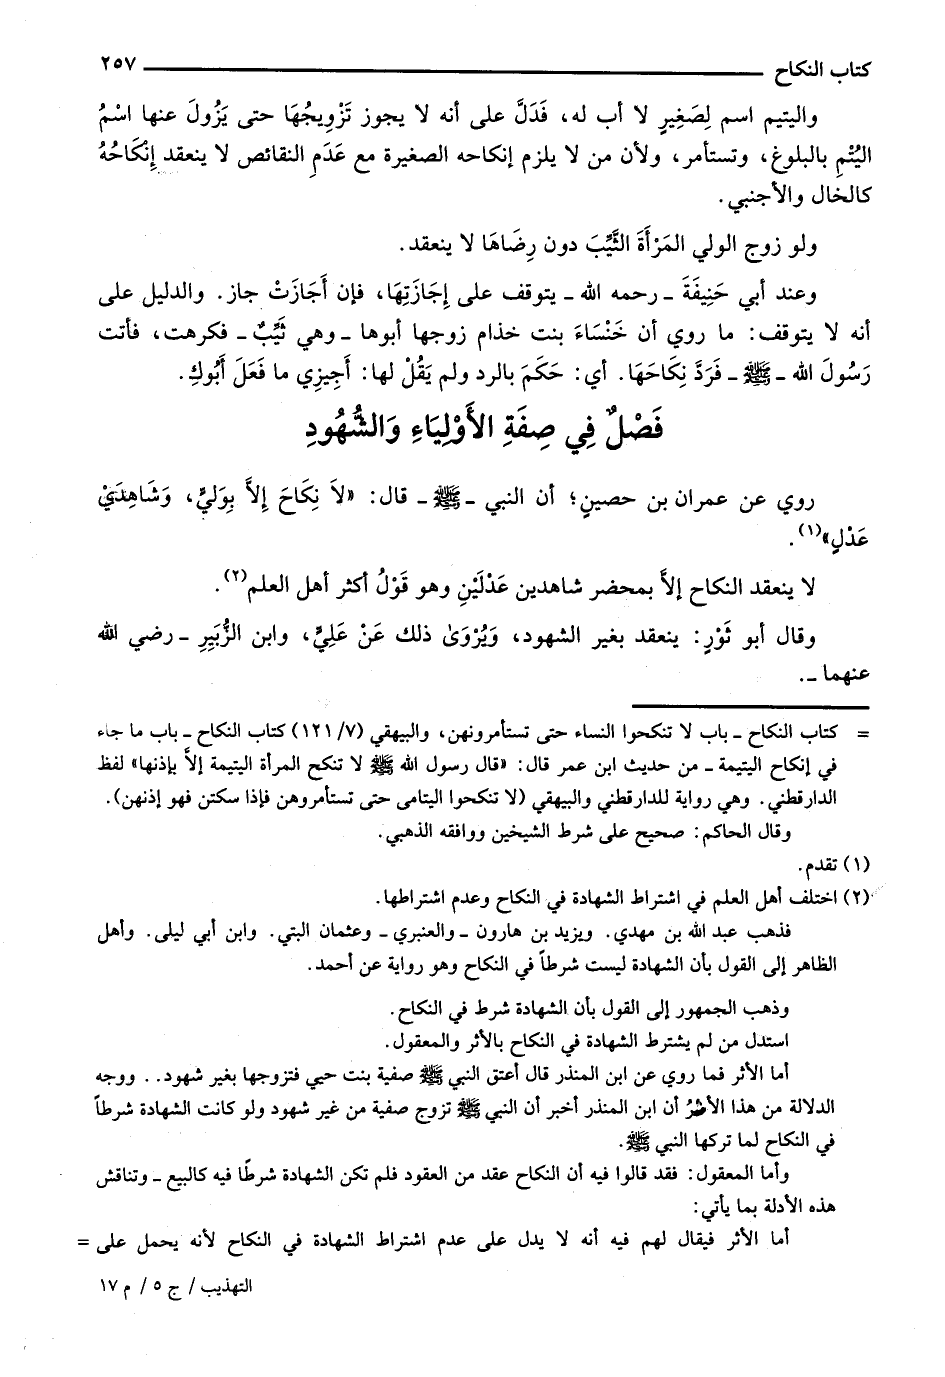 كتاب النكاح ٢٥٧
واليتيم اسم لِصَغِيرٍ لا أب له، فَدَلَّ على أنه لا يجوز تَزْوِيجُهَا حتى يَزُولَ عنها اسْمُ
اليُتْمِ بالبلوغ، وتستأمر، ولأن من لا يلزم إنكاحه الصغيرة مع عَدَمِ النقائص لا ينعقد إِنْكَاحُهُ
كالخال والأجنبي.
ولو زوج الولي المَرْأَةَ الثَّيِّبَ دون رِضَاهَا لا ينعقد.
وعند أبي حَنِيفَةَ ـ رحمه الله ـ يتوقف على إِجَازَتِهَا، فإن أَجَازَتْ جاز. والدليل على
أنه لا يتوقف: ما روي أن خَنْسَاءَ بنت خذام زوجها أبوها ـ وهي ثَيِّبٌ ـ فكرهت، فأتت
رَسُولَ الله ـ ﷺ ـ فَرَدَّ نِكَاحَهَا. أي: حَكَمَ بالرد ولم يَقُلْ لها: أَجِيزِي ما فَعَلَ أَبُوكِ.
فَصْلٌ فِي صِفَةِ الأَوْلِيَاءِ وَالشُّهُودِ
روي عن عمران بن حصينٍ؛ أن النبي ـ ﷺ ـ قال: «لاَ نِكَاحَ إِلاَّ بِوَلِيٍّ، وَشَاهِدَيْ
عَدْلٍ»(١).
لا ينعقد النكاح إلاَّ بمحضر شاهدين عَدْلَيْنِ وهو قَوْلُ أكثر أهل العلم(٢).
وقال أبو ثَوْرٍ: ينعقد بغير الشهود، وَيُرْوَىٰ ذلك عَنْ عَلِيٍّ، وابن الزُّبَيِرِ ـ رضي الله
عنهما ـ.
= كتاب النكاح ـ باب لا تنكحوا النساء حتى تستأمرونهن، والبيهقي (٧/ ١٢١) كتاب النكاح ـ باب ما جاء
في إنكاح اليتيمة ـ من حديث ابن عمر قال: «قال رسول الله ﷺ لا تنكح المرأة اليتيمة إلاَّ بإذنها» لفظ
الدارقطني. وهي رواية للدارقطني والبيهقي (لا تنكحوا اليتامى حتى تستأمروهن فإذا سكتن فهو إذنهن).
وقال الحاكم: صحيح على شرط الشيخين ووافقه الذهبي.
(١) تقدم.
(٢) اختلف أهل العلم في اشتراط الشهادة في النكاح وعدم اشتراطها.
فذهب عبد الله بن مهدي. ويزيد بن هارون ـ والعنبري ـ وعثمان البتي. وابن أبي ليلى. وأهل
الظاهر إلى القول بأن الشهادة ليست شرطاً في النكاح وهو رواية عن أحمد.
وذهب الجمهور إلى القول بأن الشهادة شرط في النكاح.
استدل من لم يشترط الشهادة في النكاح بالأثر والمعقول.
أما الأثر فما روي عن ابن المنذر قال أعتق النبي ﷺ صفية بنت حيي فتزوجها بغير شهود.. ووجه
الدلالة من هذا الأثر أن ابن المنذر أخبر أن النبي ﷺ تزوج صفية من غير شهود ولو كانت الشهادة شرطاً
في النكاح لما تركها النبي ﷺ.
وأما المعقول: فقد قالوا فيه أن النكاح عقد من العقود فلم تكن الشهادة شرطًا فيه كالبيع ـ وتناقش
هذه الأدلة بما يأتي:
أما الأثر فيقال لهم فيه أنه لا يدل على عدم اشتراط الشهادة في النكاح لأنه يحمل على =
التهذيب/ ج ٥/ م ١٧